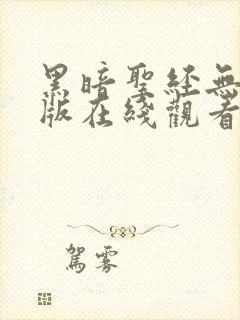 黑暗聖经無
版在綫觀看
駕霧